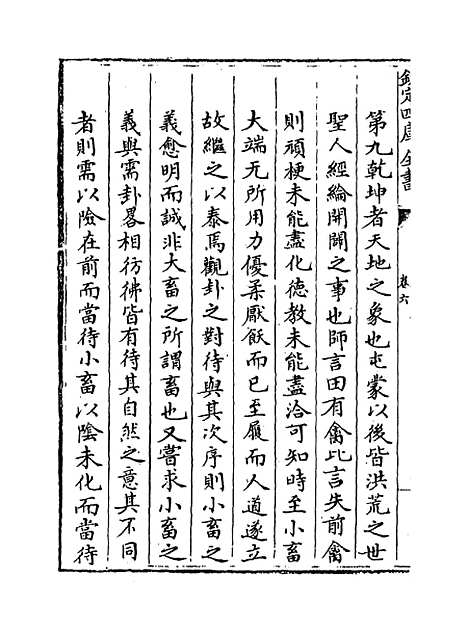 欽定四庫全書
卷六
第九乾坤者天地之象也屯蒙以後皆洪荒之世
聖人經綸開闢之事也師言田有禽比言失前禽
則頑梗未能盡化德教未能盡洽可知時至小畜
大端无所用力優柔厭飫而已至履而人道遂立
故繼之以泰焉觀卦之對待與其次序則小畜之
義愈明而誠非大畜之所謂畜也又嘗求小畜之
義與需卦畧相彷彿皆有待其自然之意其不同
者則需以險在前而當待小畜以陰未化而當待